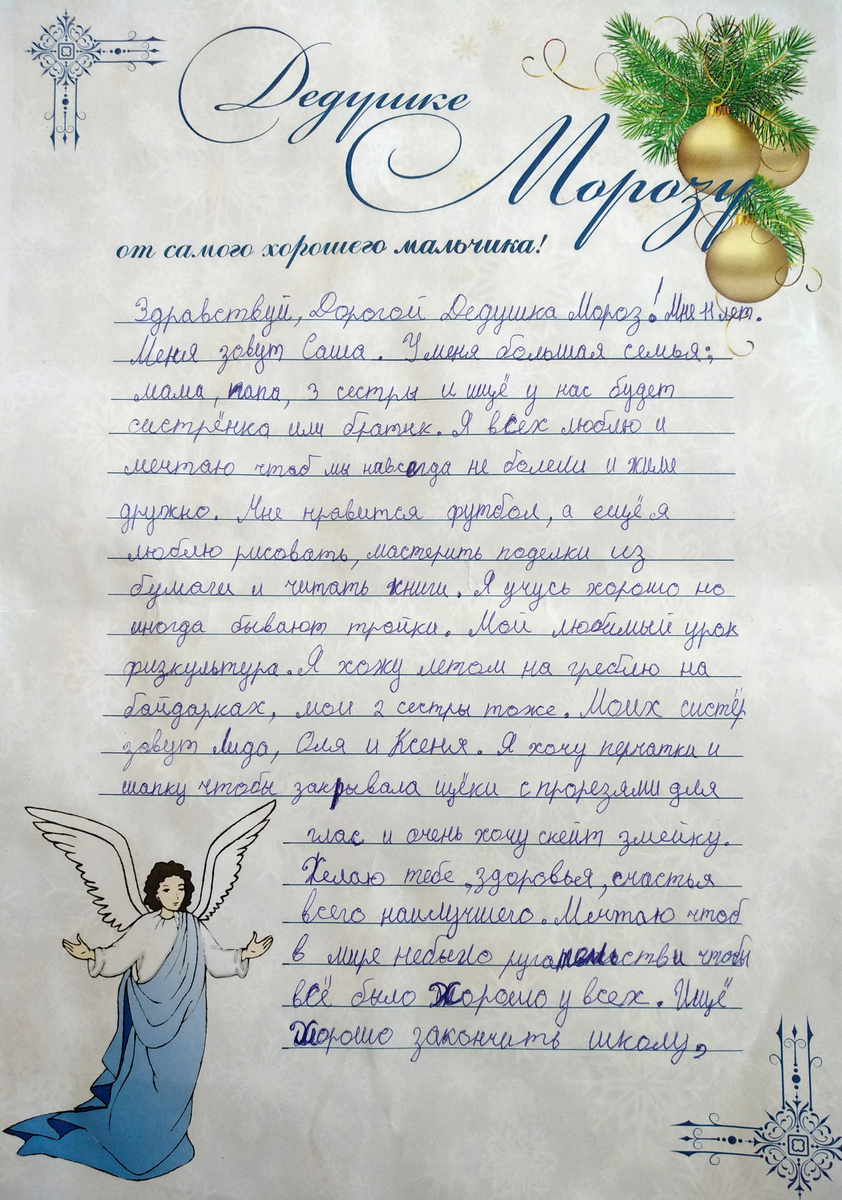 Дедушке
Морозу
от самого хорошего мальчика!
Здравствуй, Дорогой Дедушка Мороз! Мне 11 лет.
Меня зовут Саша. У меня большая семья:
мама, папа, 3 сестры и ищё у нас будет
систрёнка или братик. Я всех люблю и
мечтаю чтоб мы навсегда не болели и жили
дружно. Мне нравится футбол, а ещё я
люблю рисовать, мастерить поделки из
бумаги и читать книги. Я учусь хорошо но
иногда бывают тройки. Мой любимый урок
физкультура. Я хожу летом на греблю на
байдарках, мои 2 сестры тоже. Моих систёр
зовут Лида, Оля и Ксеня. Я хочу перчатки и
шапку чтобы закрывала щёки с прорезями для
глас и очень хочу скейт змейку.
Желаю тебе, здоровья, счастья
всего наилучшего. Мечтаю чтоб
в мире небыло ругательстви чтобы
всё было Хорошо у всех. Ищё
Хорошо закончить школу,